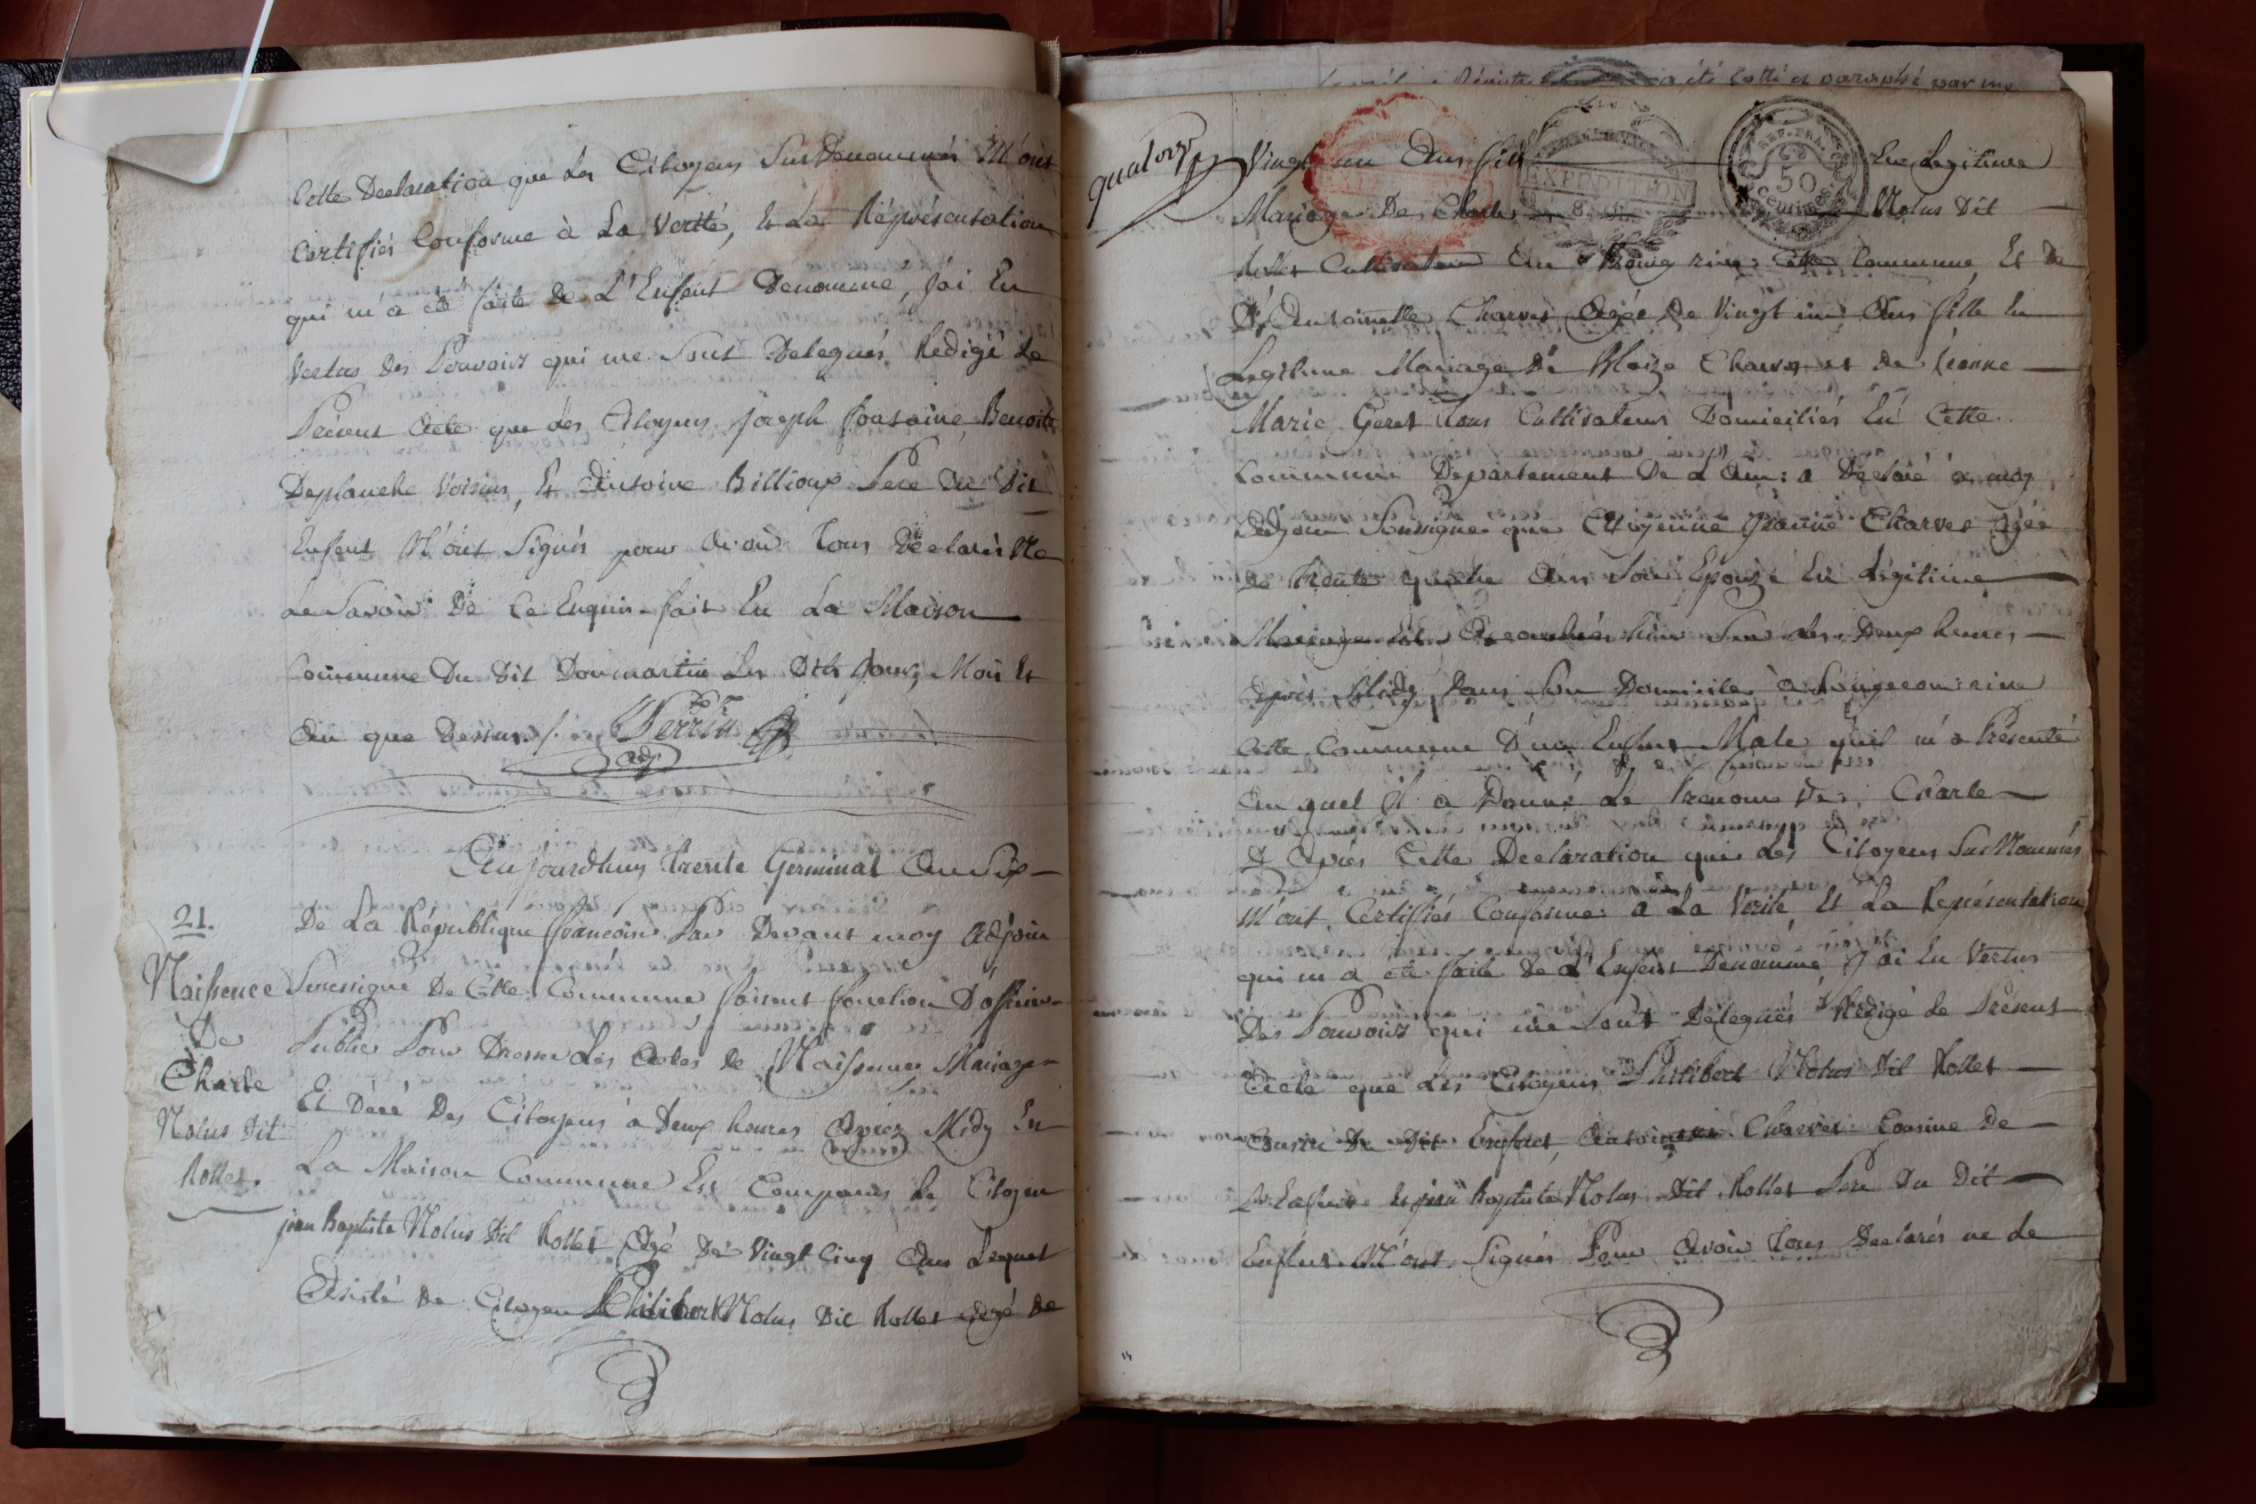 Cette Declaration que Les Citoyens Susdenommés M'ont
Certifiés Conforme à La Verité, Et La Réprésentation
qui m'a été faite de L'Enfent Denommé, J'ai En
Vertus des Pouvoirs qui me Sont Delegués Redigé Le
Présent Acte que des Citoyens Joseph fontaine Benoite
Deplanche Voisins, Et Antoine Billioux Pere du Dit
Enfent N'ont Signés pour Avoir Tous Déclarés Ne
Le Savoir De Ce Enquis. fait En La Maison
Commune Du Dit Dommartin Les Dits Jour, Moi Et
An que Dessus./.
Perrin
adj
21.
Naissence
De
Charle
Nolus Dit
Rollet.
Aujourd'huy trente Germinal An Six
De La République francoise Par Devant moy Adjoin
Soussigné De Cette Commune faisent fonction D'officier
Public Pour Dresser Les Actes de Naissence Mariage
Et Décé Des Citoyens à Deux heures Après Midy En
La Maison Commune Est Comparus Le Citoyen
jean Baptiste Nolus Dit Rollet Agé De Vingt Cinq Ans Lequel
Assisté De Citoyen Philibert Nolus Dit Rollet Agé De
a été Cotté et paraphé par
quatorze
EXPEDITION
REP. FRA.
50
Centimes
Vingt un Ans fils En Legitime
Mariage De Charle Nolus Dit
Rollet Cultivateur Au rive Cette Commune Et De
Antoinette Charvet Agée De Vingt un Ans fille En
Legitime Mariage De Blaize Charvet et De
Marie Geret Tous Cultivateurs Domiciliés En Cette
Commune Departement De L'Ain : a Déclaré à moy
Adjoin Soussigné que Citoyenne Charvet Agée
De Trente quatre Ans Son Epouze En Légitime
Mariage Est Accouchée hier Sur Les Deux heures
Après Midy Dans Son Domicile à rive
Cette Commune D'un Enfent Male qu'il m'a Présenté
Au quel Il a Donné Le Prenom De Charle
D'Après Cette Declaration que Les Citoyens Sus Nommés
M'ont Certifiés Conforme à La Verité Et La Représentation
qui m'a été faite De L'Enfent Denommé J'ai En Vertus
Des Pouvoirs qui me Sont Delegués Redigé Le Présent
Acte que Les Citoyens Philibert Nolus Dit Rollet
Cousin Du Dit Enfent, Charvet Cousine De
L'Enfent Et jean Baptiste Nolus Dit Rollet Pere Du Dit
Enfent N'ont Signés Pour Avoir Tous Declarés ne Le